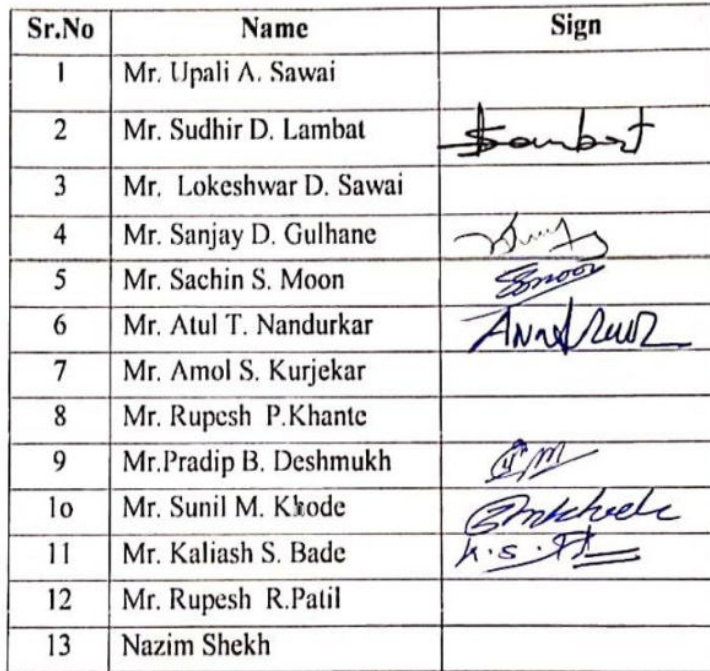 Sr.No Name Sign
1 Mr. Upali A. Sawai
2 Mr. Sudhir D. Lambat
3 Mr. Lokeshwar D. Sawai
4 Mr. Sanjay D. Gulhane
5 Mr. Sachin S. Moon
6 Mr. Atul T. Nandurkar
7 Mr. Amol S. Kurjekar
8 Mr. Rupesh P.Khante
9 Mr.Pradip B. Deshmukh
1o Mr. Sunil M. Khode
11 Mr. Kaliash S. Bade K.S.
12 Mr. Rupesh R.Patil
13 Nazim Shekh